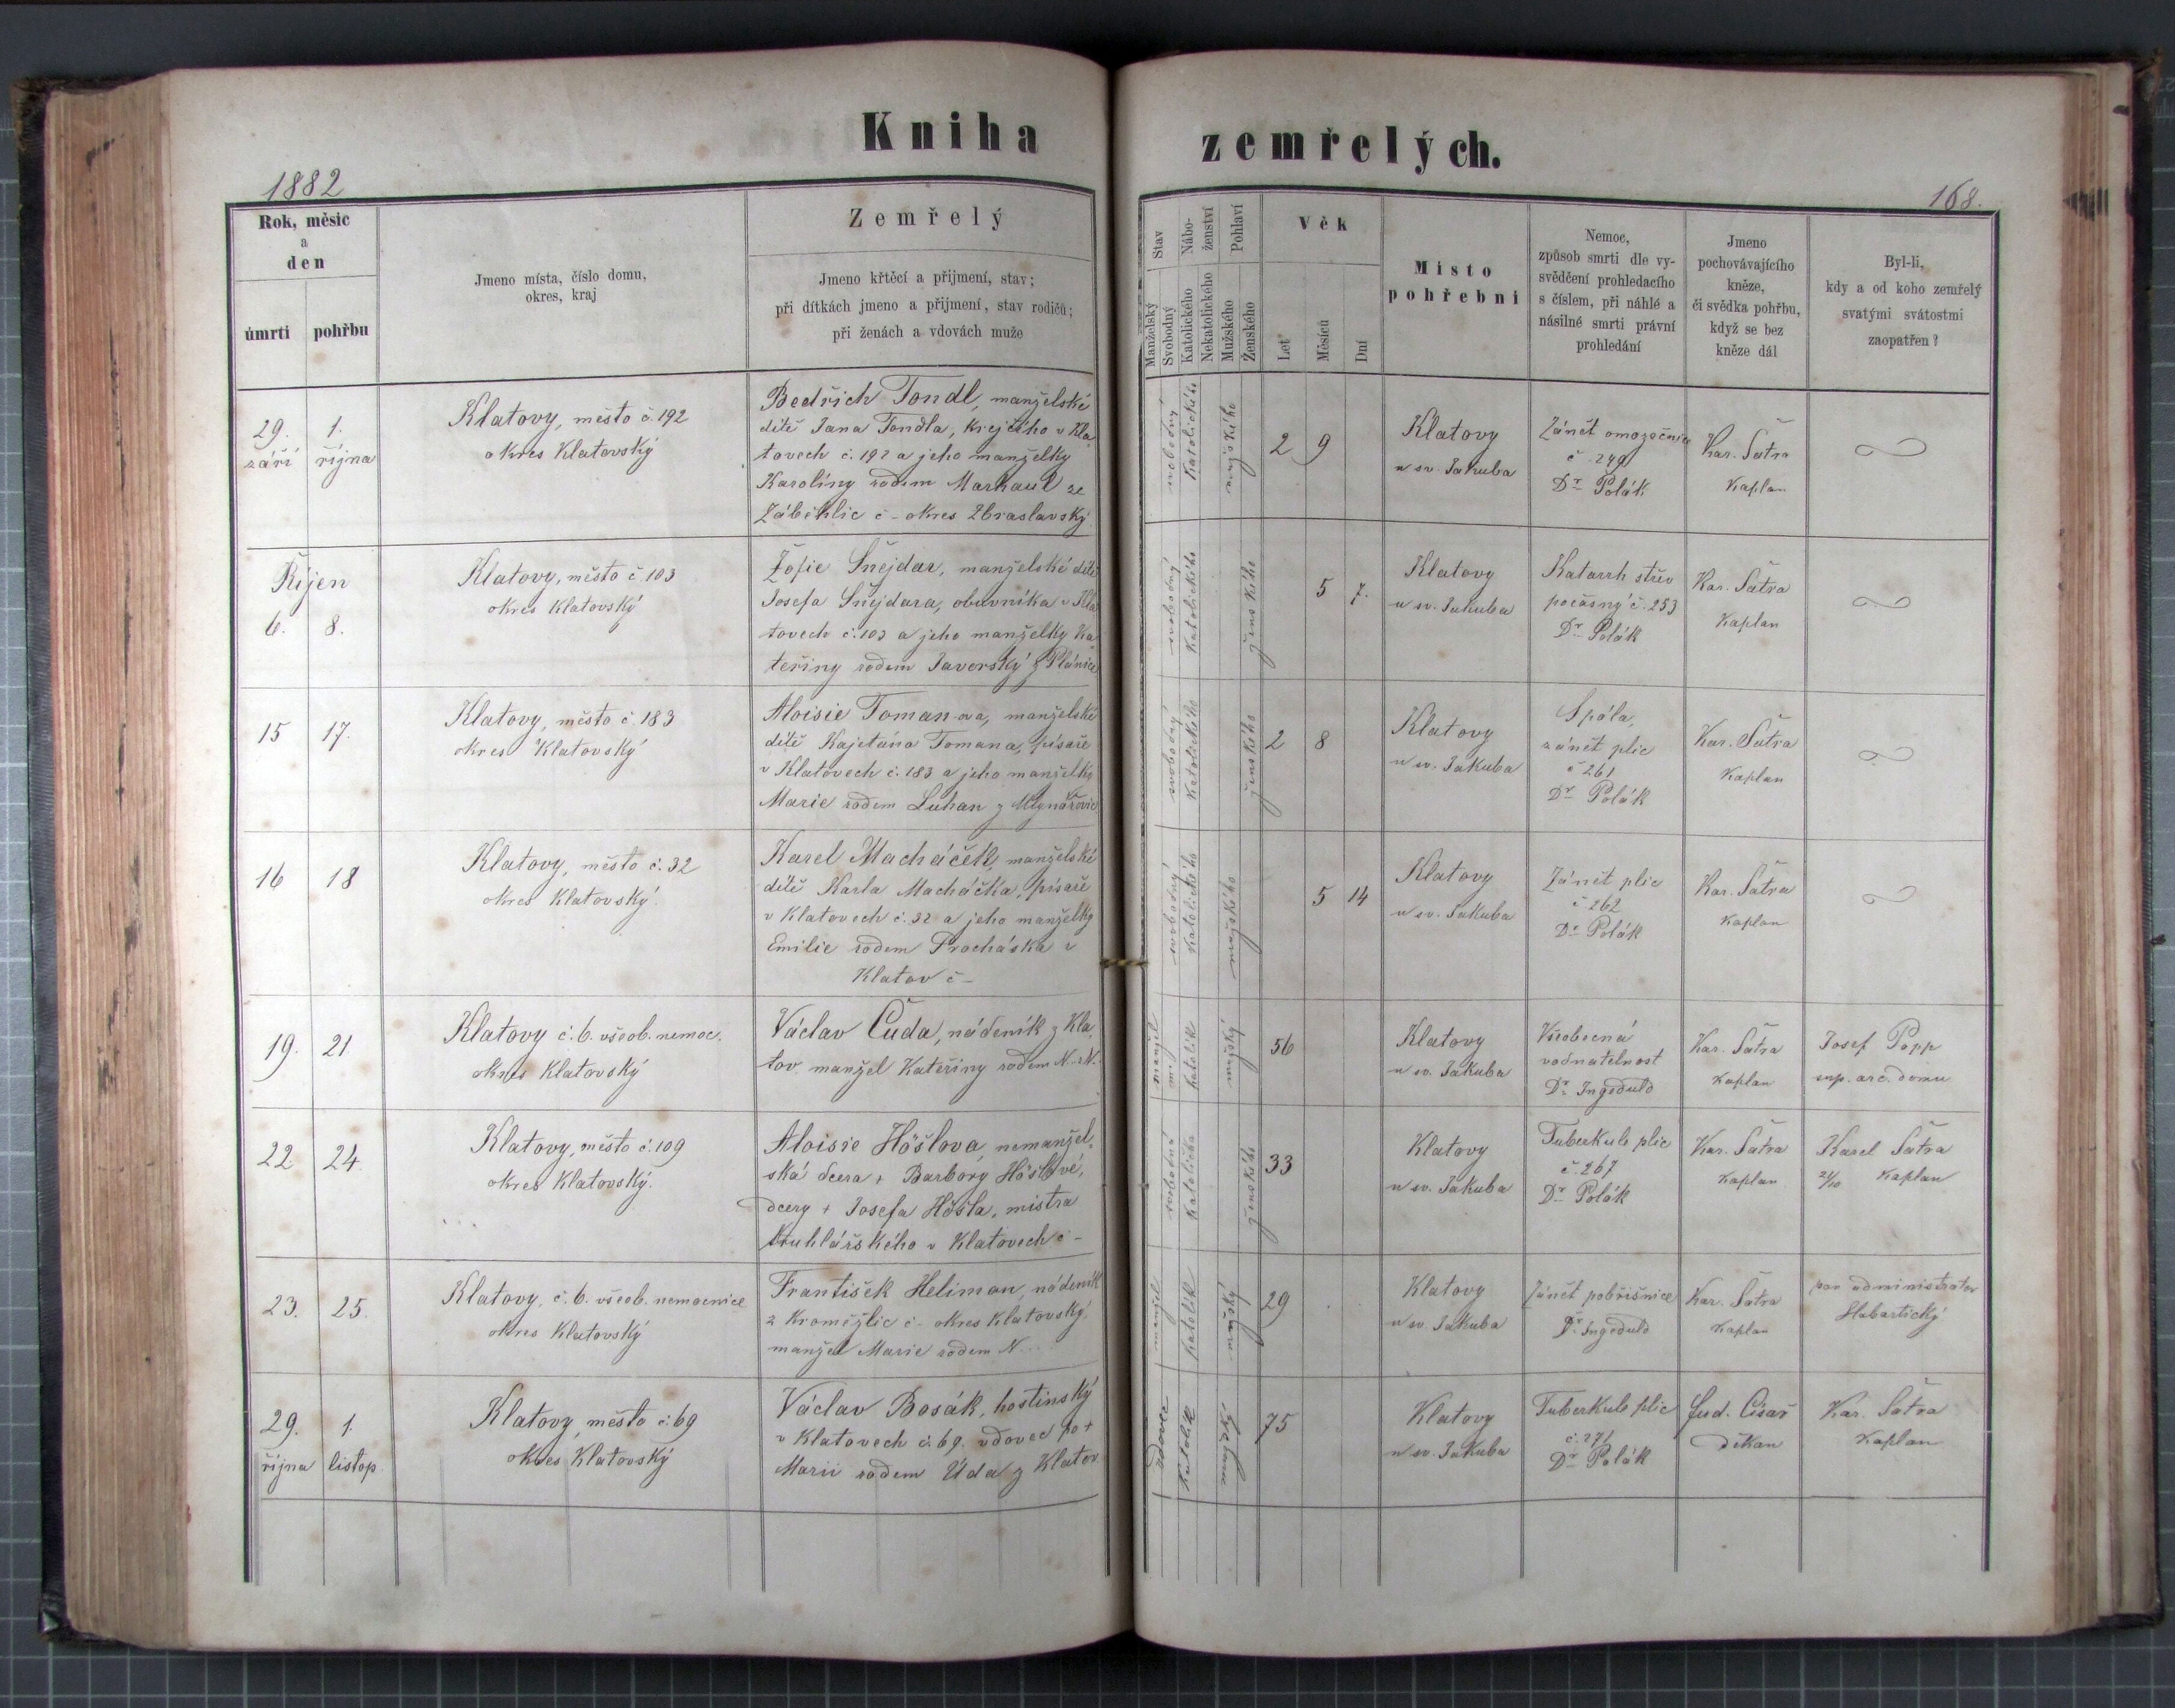 Kniha zemřelých.
1882
168.
Rok, měsíc
a
den
úmrtí
pohřbu
Jmeno místa, číslo domu,
okres, kraj
Zemřelý
Jmeno křtěcí a přijmení, stav;
při dítkách jmeno a přijmení, stav rodičů;
při ženách a vdovách muže
Stav
Manželský
Svobodný
Nábo-
ženství
Katolického
Nekatolického
Pohlaví
Mužského
Ženského
Věk
Let
Měsíců
Dní
Místo
pohřební
Nemoc,
způsob smrti dle vy-
svědčení prohledacího
s číslem, při náhlé a
násilné smrti právní
prohledání
Jmeno
pochovávajícího
kněze,
či svědka pohřbu,
když se bez
kněze dál
Byl-li,
kdy a od koho zemřelý
svatými svátostmi
zaopatřen?
29.
září
1.
října
Klatovy, město č. 192
okres Klatovský
Bedřich Tondl, manželské
dítě Jana Tondla, krejčího v Kla
tovech č. 192 a jeho manželky
Karolíny rodem Markaul ze
Záběhlic č – okres Zbraslavský
svobodný
katolického
mužského
2
9
Klatovy
u sv. Jakuba
Zánět omozečnice
č. 249
Dr. Polák
Kar. Šatra
Kaplan
Říjen
6.
8.
Klatovy, město č. 103
okres Klatovský
Žofie Šnejdar, manželské dítě
Josefa Šnejdara, obuvníka v Kla
tovech č. 103 a jeho manželky Ka
teřiny rodem Javorský z Plánice
svobodný
katolického
ženského
5
7.
Klatovy
u sv. Jakuba
Katarrh střev
počasný č. 253
Dr. Polák
Kar. Šatra
Kaplan
15
17.
Klatovy, město č. 183
okres Klatovský
Aloisie Tomanova, manželské
dítě Kajetána Tomana, písaře
v Klatovech č. 183 a jeho manželky
Marie rodem Luhan z Mlynářovic
svobodný
katolického
ženského
2
8
Klatovy
u sv. Jakuba
Spála,
zánět plic
č 261
Dr. Polák
Kar. Šatra
Kaplan
16
18
Klatovy, město č. 32
okres Klatovský.
Karel Macháček, manželské
dítě Karla Macháčka, písaře
v Klatovech č. 32 a jeho manželky
Emilie rodem Procháska z
Klatov č –
svobodný
katolického
mužského
5
14
Klatovy
u sv. Jakuba
Zánět plic
č 262
Dr. Polák
Kar. Šatra
Kaplan
19.
21
Klatovy č. 6. všeob. nemoc.
okres Klatovský
Václav Čuda, nádeník z Kla
tov, manžel Kateřiny rodem N. z N.
manžel
katolík
mužský
56
Klatovy
u sv. Jakuba
Všeobecná
vodnatelnost
Dr. Ingeduld
Kar. Šatra
Kaplan
Josef Popp
sup. arc. domu
22
24.
Klatovy, město č. 109
okres Klatovský.
Aloisie Höšlova, nemanžel,
ská dcera + Barbory Höšlové,
dcery + Josefa Höšla, mistra
truhlářského v Klatovech č –
svobodná
katolička
ženského
33
Klatovy
u sv. Jakuba
Tuberkule plic
č. 267
Dr. Polák
Kar. Šatra
Kaplan
Karel Šatra
21/10 Kaplan
23.
25.
Klatovy, č. 6. všeob. nemocnice
okres Klatovský
František Heliman, nádeník
z Kroměžlic č – okres Klatovský,
manžel Marie rodem N...
manžel
katolík
mužský
29
Klatovy
u sv. Jakuba
Zánět pobřišnice
Dr. Ingeduld
Kar. Šatra
Kaplan
pan administrator
Habartický
29.
října
1.
listop.
Klatovy, město č. 69
okres Klatovský
Václav Bosák, hostinský
v Klatovech č. 69. vdovec po +
Marii rodem Úda z Klatov
vdovec
katolík
mužský
75
Klatovy
u sv. Jakuba
Tuberkule plic
č. 271
Dr. Polák
Lud. Císař
děkan
Kar. Šatra
Kaplan